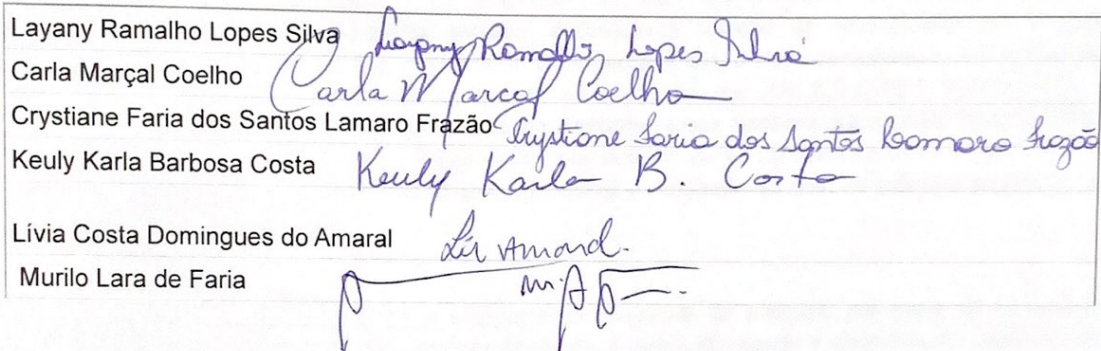 Layany Ramalho Lopes Silva Layany Ramalho Lopes Silva
Carla Marçal Coelho Carla Marçal Coelho
Crystiane Faria dos Santos Lamaro Frazão Crystiane Faria dos Santos Lamaro Frazão
Keuly Karla Barbosa Costa Keuly Karla B. Costa
Lívia Costa Domingues do Amaral
Murilo Lara de Faria